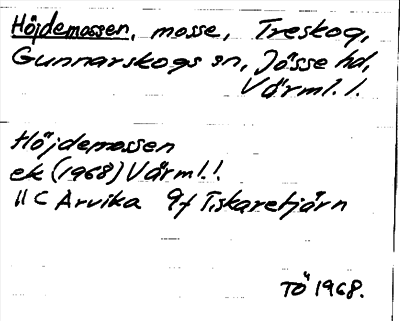 Höjdemossen, mosse, Treskog,
Gunnarskogs sn, Jösse hd,
Värml. l.
Höjdemossen
ek (1968) Värml.!
11 C Arvika 9f Tiskaretjärn
TÖ 1968.